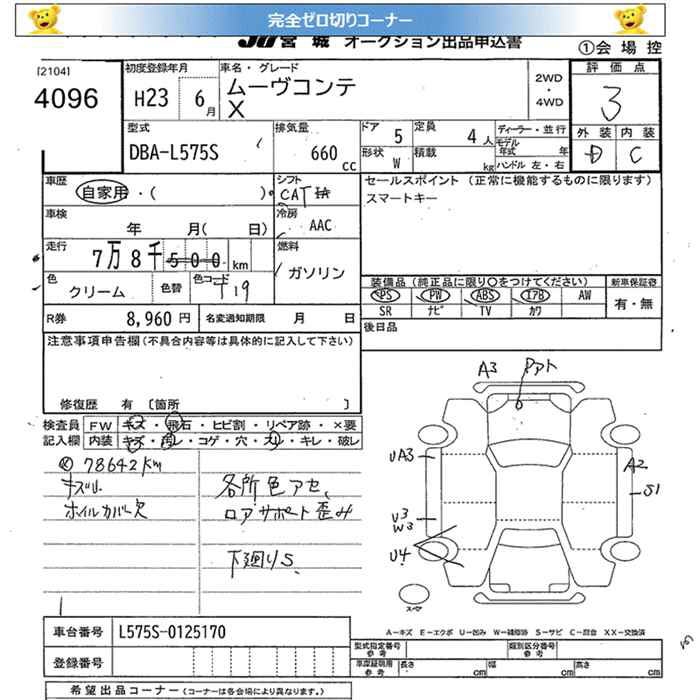 完全ゼロ切りコーナー
JU宮城 オークション出品申込書
①会場控
[2104]
4096
初度登録年月
H23 6月
車名・グレード
ムーヴコンテ
X
2WD
・
4WD
評価点
3
外装 内装
D C
型式
DBA-L575S
排気量
660 cc
ドア 5
定員 4人
形状 W
積載 kg
ディーラー・並行
モデル年式 年
ハンドル 左・右
車歴
自家用・( )
シフト
CAT
車検
年 月( 日)
冷房
AAC
走行
7万8千500km
燃料
ガソリン
色
クリーム
色替
色コード
T19
セールスポイント (正常に機能するものに限ります)
スマートキー
装備品(純正品に限り○をつけてください)
新車保証書
PS PW ABS エアB AW
SR ナビ TV カワ
有・無
R券 8,960円
名変通知期限 月 日
後日品
注意事項申告欄(不具合内容等は具体的に記入して下さい)
修復歴 有 〔箇所 〕
検査員記入欄
FW キズ・飛石・ヒビ割・リペア跡・×要
内装 キズ・汚レ・コゲ・穴・スレ・キレ・破レ
78642km
キズU
ホイルカバー欠
各所色アセ、
ロアサポート歪み
下廻りS
A3
UA3
A2
S1
U3
W3
U4
スペア
A-キズ E-エクボ U-凹み W-補修跡 S-サビ C-腐食 XX-交換済
車台番号 L575S-0125170
登録番号
型式指定番号 参考
類別区分番号 参考
車庫証明用 参考
長さ cm
幅 cm
高さ cm
希望出品コーナー(コーナーは各会場により異なります。)